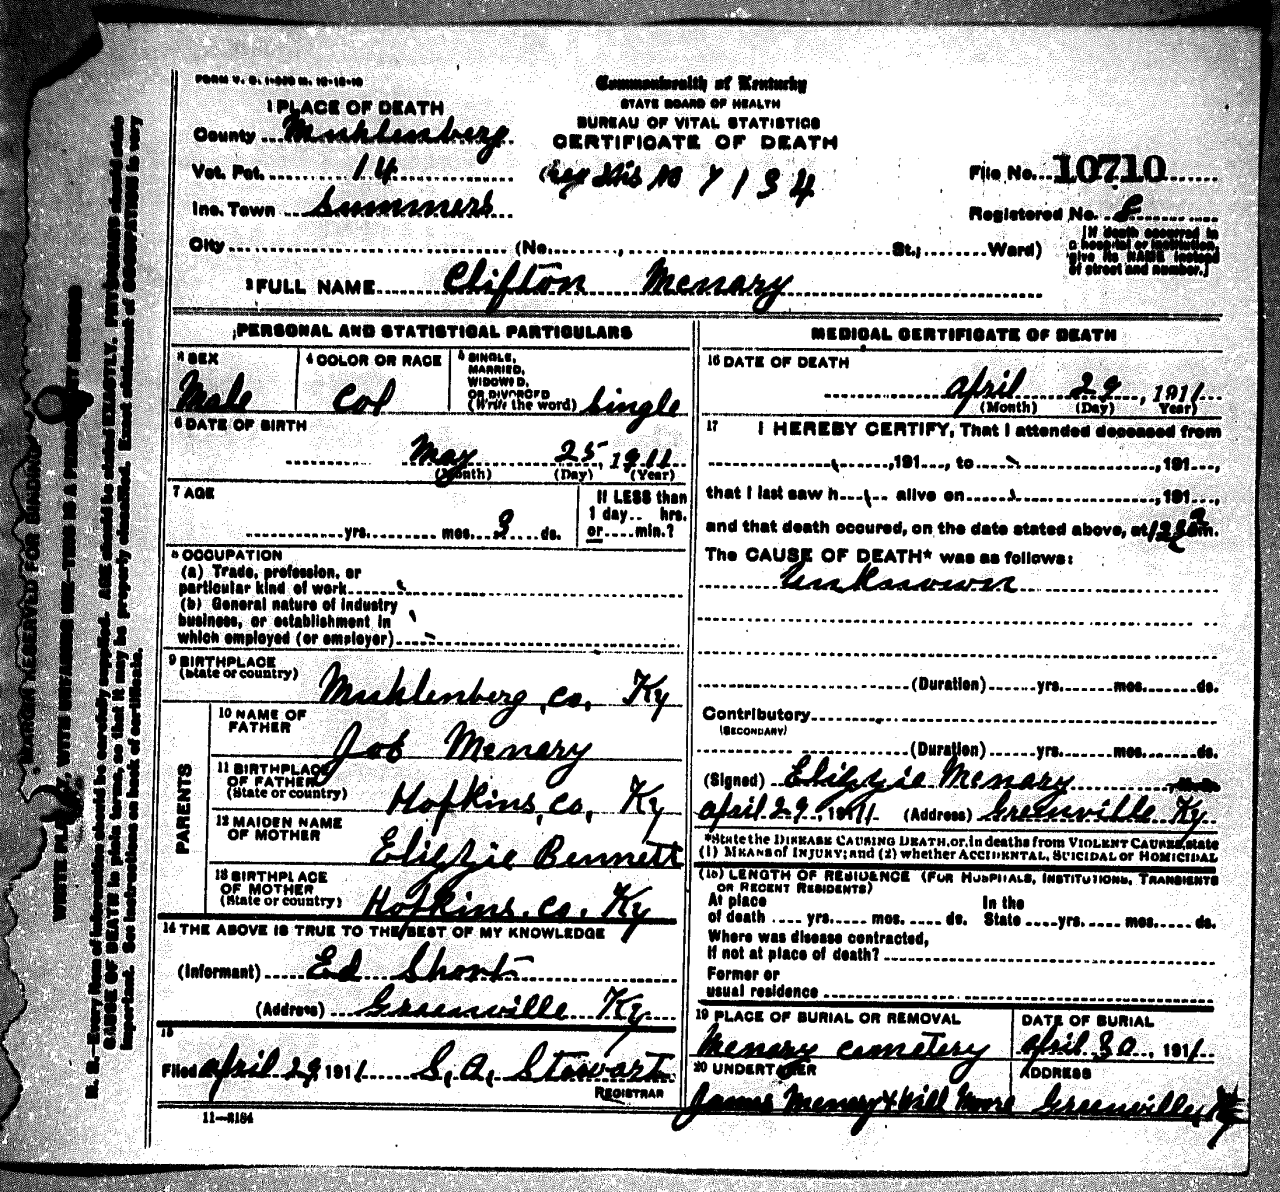 FORM V. S. 1-
Commonwealth of Kentucky
STATE BOARD OF HEALTH
BUREAU OF VITAL STATISTICS
CERTIFICATE OF DEATH
1 PLACE OF DEATH
County Muhlenberg
Vot. Pct. 14
Inc. Town Summers
7134
File No. 10710
Registered No.
[If death occurred in
a hospital or institution,
give its NAME instead
of street and number.]
City (No. , St.; Ward)
2 FULL NAME Clifton Menary
PERSONAL AND STATISTICAL PARTICULARS
3 SEX
Male
4 COLOR OR RACE
Col
5 SINGLE,
MARRIED,
WIDOWED,
OR DIVORCED
(Write the word) Single
6 DATE OF BIRTH
May 25, 1911
(Month) (Day) (Year)
7 AGE
yrs. mos. 3 ds.
If LESS than
1 day.. hrs.
or....min.?
8 OCCUPATION
(a) Trade, profession, or
particular kind of work
(b) General nature of industry
business, or establishment in
which employed (or employer)
9 BIRTHPLACE
(State or country) Muhlenberg, co, Ky
PARENTS
10 NAME OF
FATHER Job Menary
11 BIRTHPLACE
OF FATHER
(State or country) Hopkins, co, Ky
12 MAIDEN NAME
OF MOTHER Elizzie Bennett
13 BIRTHPLACE
OF MOTHER
(State or country) Hopkins. co. Ky
14 THE ABOVE IS TRUE TO THE BEST OF MY KNOWLEDGE
(Informant) Ed Short
(Address) Greenville Ky.
15
Filed april 29 1911 S. A. Stewart
REGISTRAR
11—8184
MEDICAL CERTIFICATE OF DEATH
16 DATE OF DEATH
april 29, 1911
(Month) (Day) Year)
17 I HEREBY CERTIFY, That I attended deceased from
,191 , to ,191 ,
that I last saw h alive on ,191 ,
and that death occured, on the date stated above, at m.
The CAUSE OF DEATH* was as follows:
Unknown
(Duration) yrs. mos. ds.
Contributory
(SECONDARY)
(Duration) yrs. mos. ds.
(Signed) Elizzie Menary
april 29, 1911 (Address) Greenville Ky.
*State the DISEASE CAUSING DEATH, or, in deaths from VIOLENT CAUSES, state
(1) MEANS of INJURY; and (2) whether ACCIDENTAL, SUICIDAL or HOMICIDAL
(18) LENGTH OF RESIDENCE (FOR HOSPITALS, INSTITUTIONS, TRANSIENTS
OR RECENT RESIDENTS)
At place
of death yrs. mos. ds.
In the
State yrs. mos. ds.
Where was disease contracted,
If not at place of death?
Former or
usual residence
19 PLACE OF BURIAL OR REMOVAL
Menary cemetery
DATE OF BURIAL
april 30, 1911
20 UNDERTAKER
James Menary & Will Moore
ADDRESS
Greenville, Ky
MARGIN RESERVED FOR BINDING
WRITE PLAINLY, WITH UNFADING INK—THIS IS A PERMANENT RECORD
N. B.—Every item of information should be carefully supplied. AGE should be stated EXACTLY. PHYSICIANS should state
CAUSE OF DEATH in plain terms, so that it may be properly classified. Exact statement of OCCUPATION is very
important. See instructions on back of certificate.